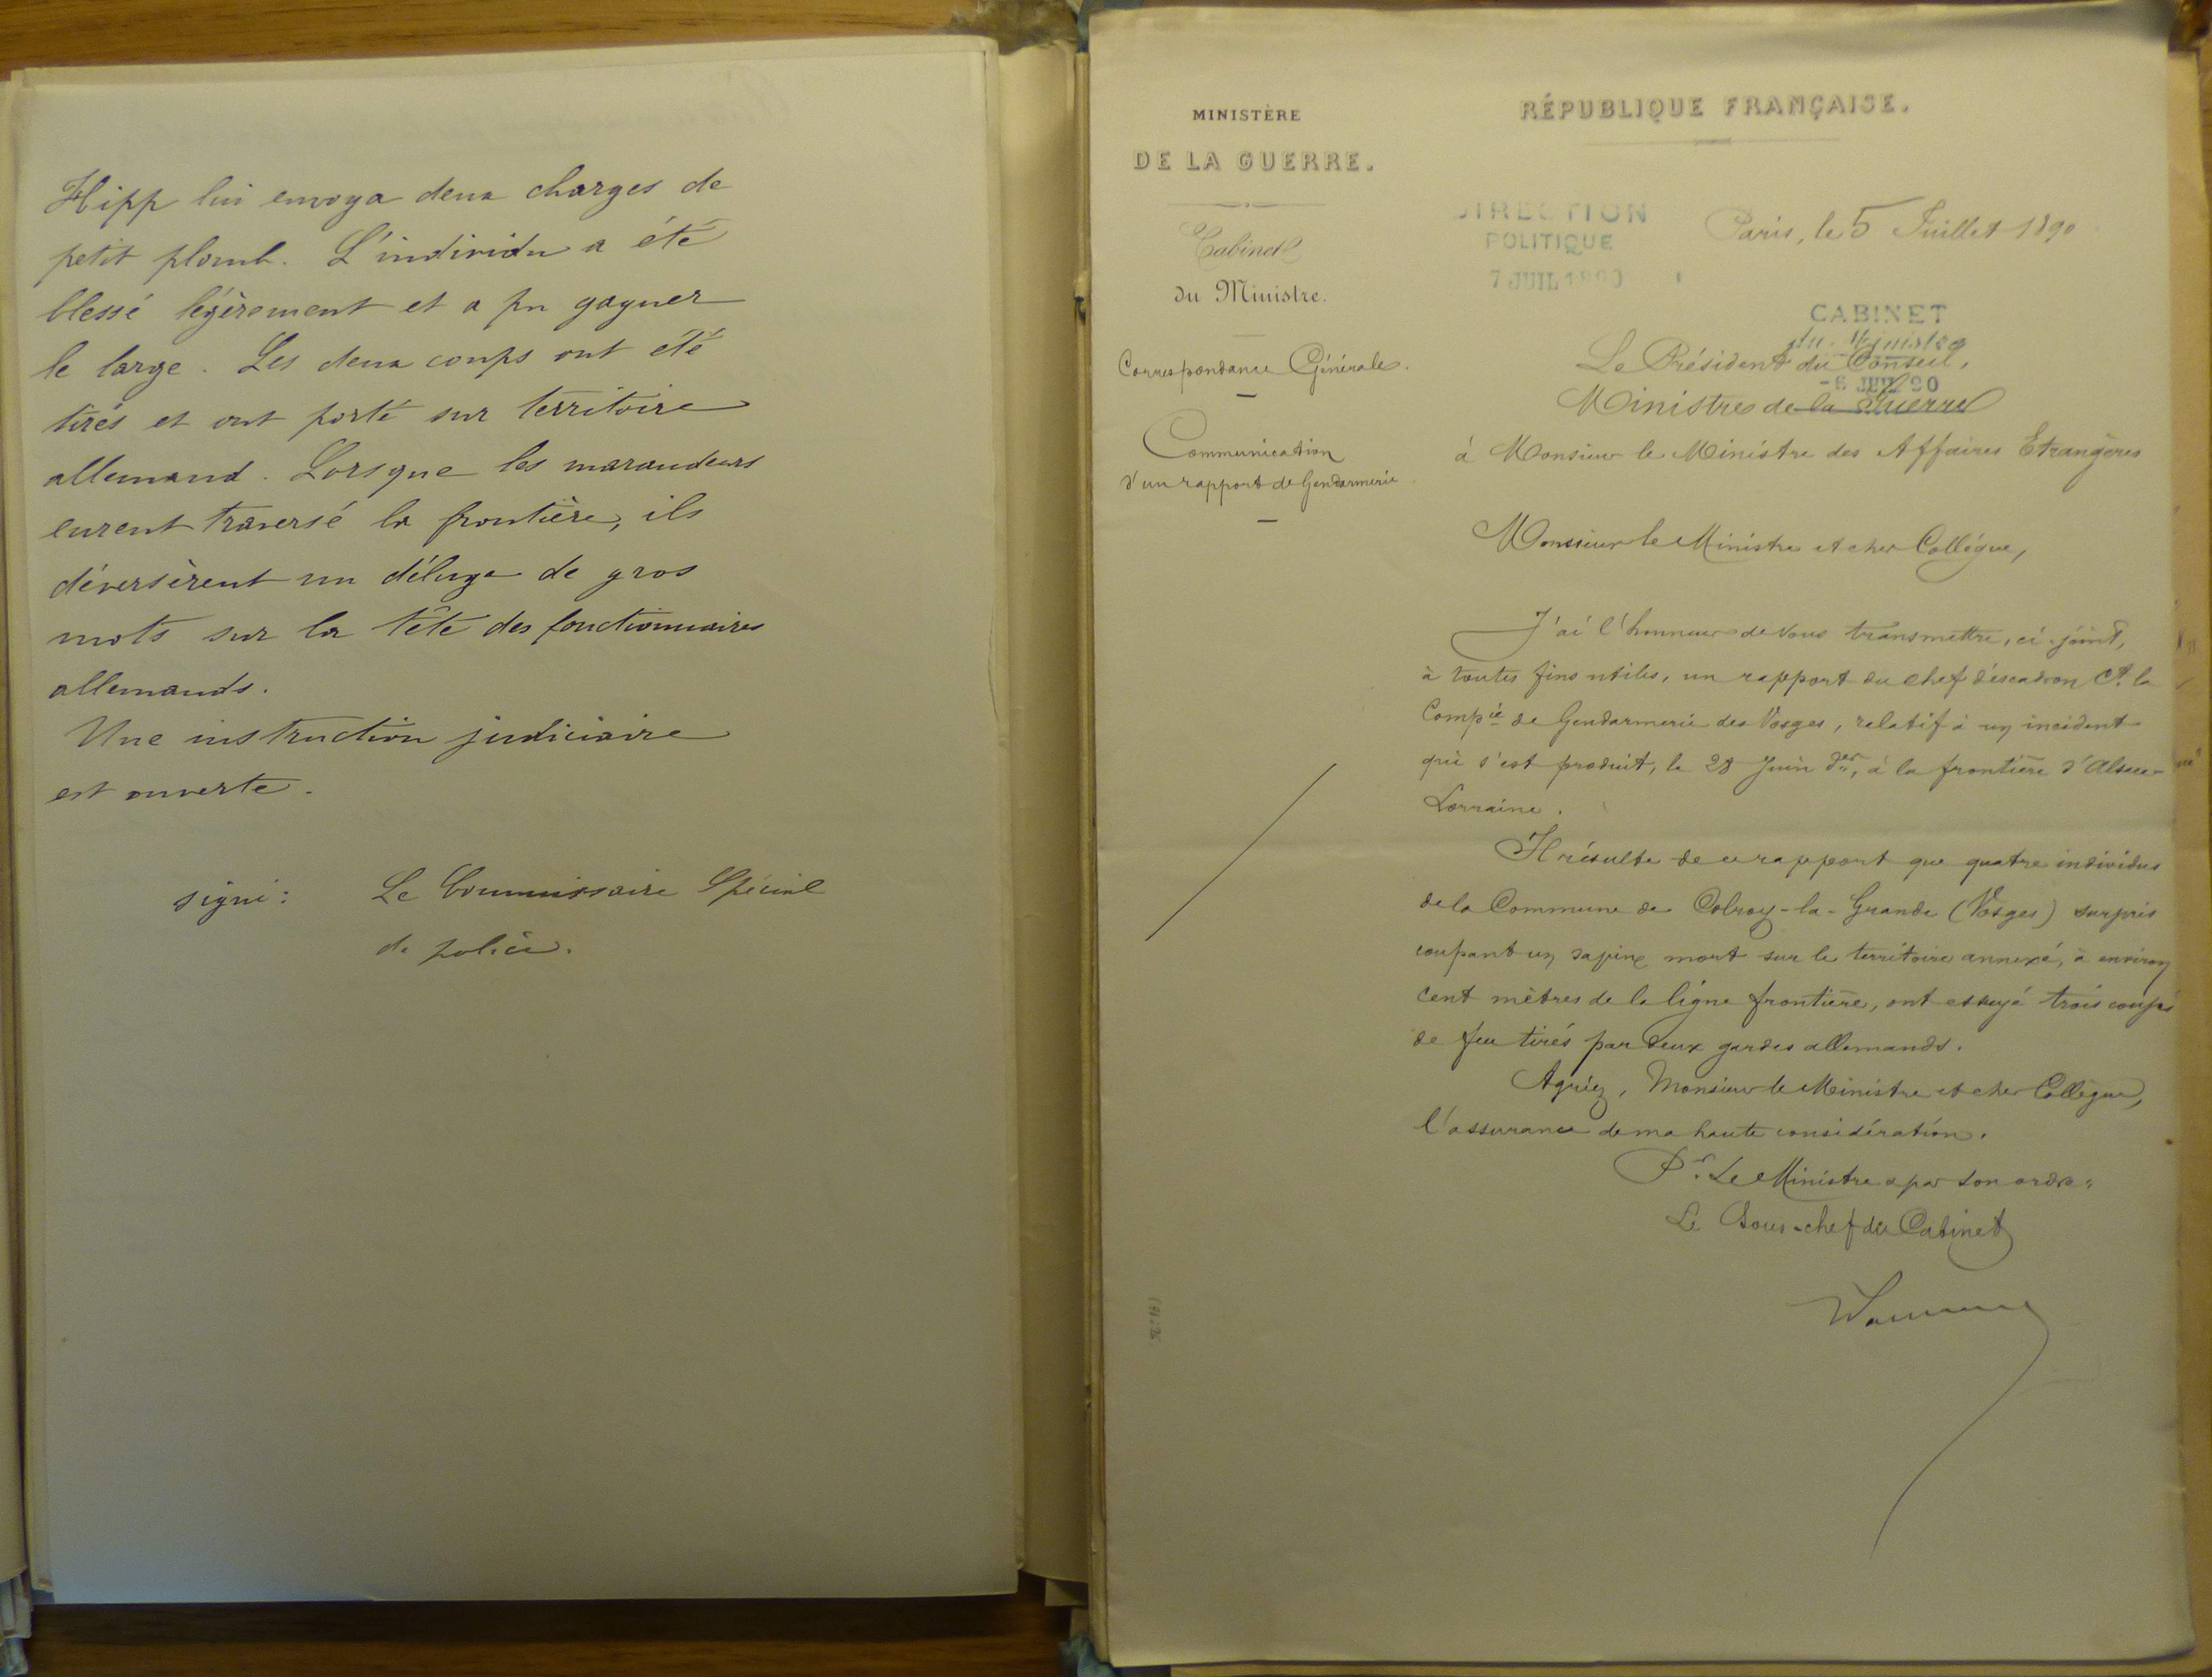 Hipp lui envoya deux charges de
petit plomb. L'individu a été
blessé légèrement et a pu gagner
le large. Les deux coups ont été
tirés et ont porté sur territoire
allemand. Lorsque les maraudeurs
eurent traversé la frontière, ils
déversèrent un déluge de gros
mots sur la tête des fonctionnaires
allemands.
Une instruction judiciaire
est ouverte.
signé: Le Commissaire Spécial
de police.
MINISTÈRE
DE LA GUERRE.
Cabinet
du Ministre.
Correspondance Générale.
Communication
d'un rapport de Gendarmerie.
RÉPUBLIQUE FRANÇAISE.
DIRECTION
POLITIQUE
7 JUIL 1890
Paris, le 5 Juillet 1890
CABINET
du Ministre
-6 JUIL 90
Le Président du Conseil,
Ministre de la Guerre
à Monsieur le Ministre des Affaires Etrangères
Monsieur le Ministre et cher Collègue,
J'ai l'honneur de vous transmettre, ci-joint,
à toutes fins utiles, un rapport du chef d'escadron Ct. la
Compie de Gendarmerie des Vosges, relatif à un incident
qui s'est produit, le 28 Juin der, à la frontière d'Alsace-
Lorraine.
Il résulte de ce rapport que quatre individus
de la Commune de Colroy-la-Grande (Vosges) surpris
coupant un sapin mort sur le territoire annexé, à environ
cent mètres de la ligne frontière, ont essuyé trois coups
de feu tirés par deux gardes allemands.
Agréez, Monsieur le Ministre et cher Collègue,
l'assurance de ma haute considération.
Pr. Le Ministre & par son ordre:
Le Sous-chef du Cabinet